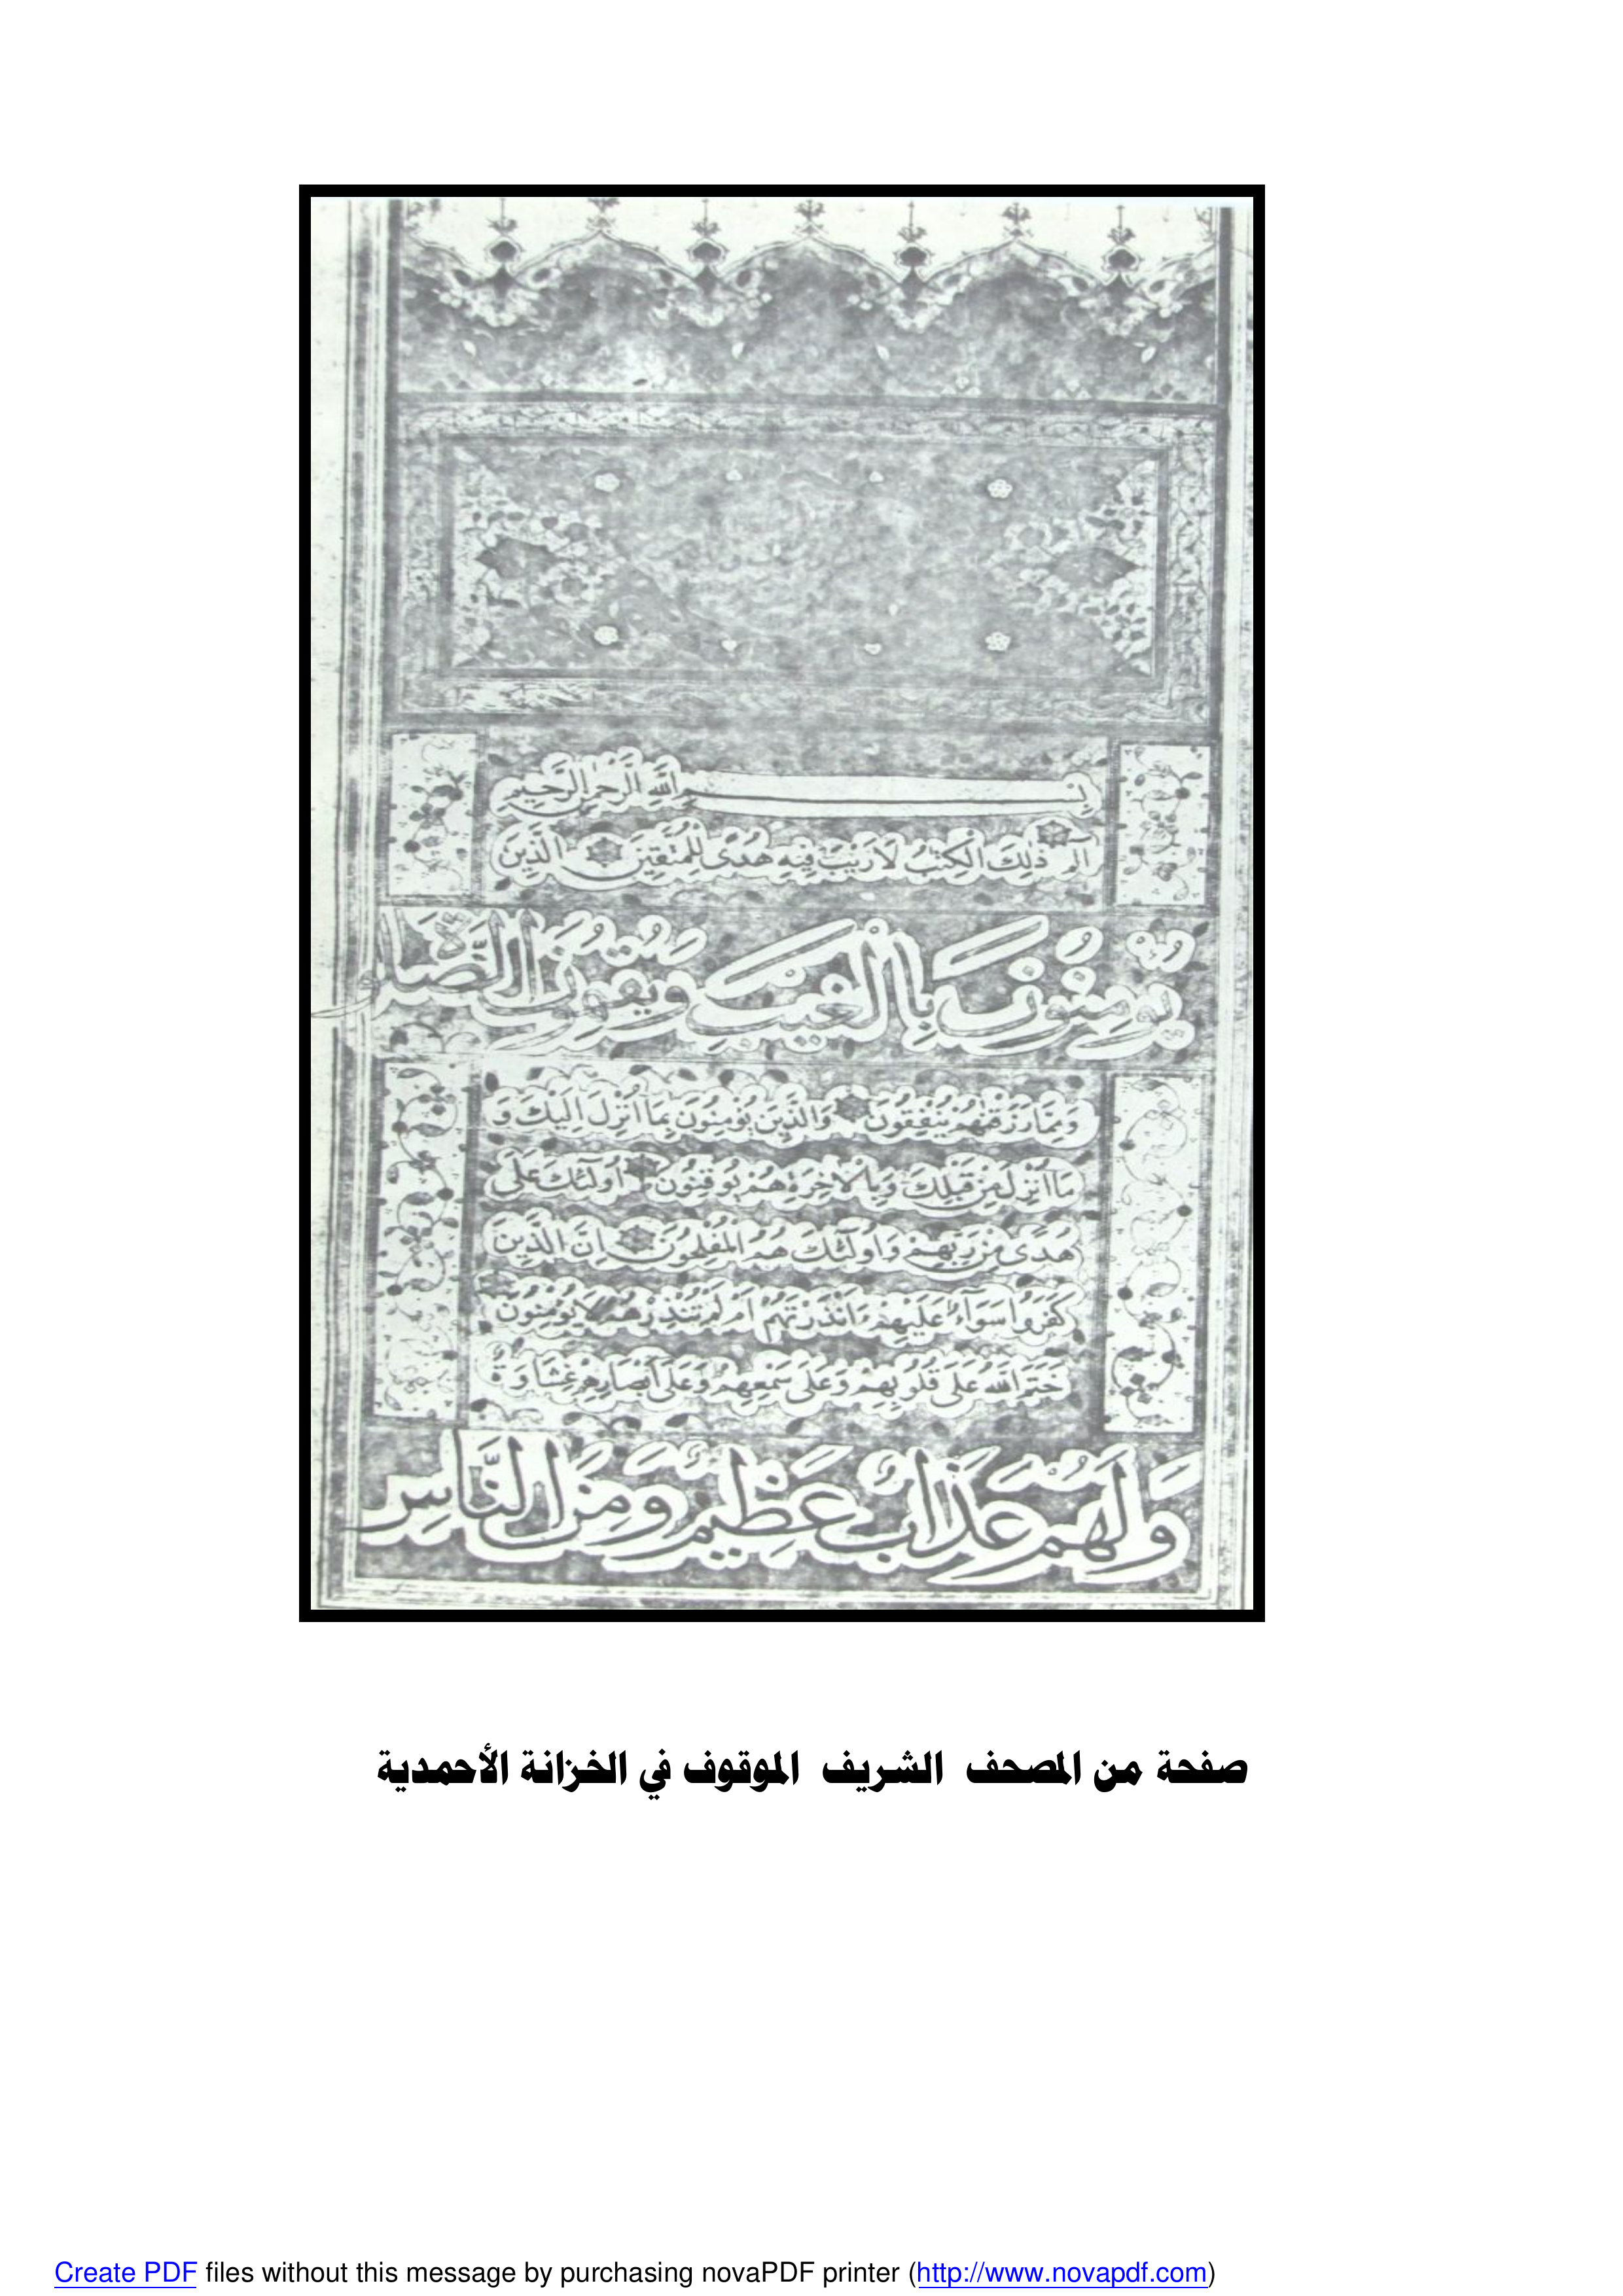 بِسْمِ اللّٰهِ الرَّحْمٰنِ الرَّحِيمِ
الٓمٓ ذٰلِكَ الْكِتٰبُ لَا رَيْبَ فِيهِ هُدًى لِلْمُتَّقِينَ الَّذِينَ
يُؤْمِنُونَ بِالْغَيْبِ وَيُقِيمُونَ الصَّلٰوةَ
وَمِمَّا رَزَقْنٰهُمْ يُنْفِقُونَ وَالَّذِينَ يُؤْمِنُونَ بِمَا اُنْزِلَ اِلَيْكَ وَ
مَا اُنْزِلَ مِنْ قَبْلِكَ وَبِالْاٰخِرَةِ هُمْ يُوقِنُونَ اُولٰٓئِكَ عَلٰى
هُدًى مِنْ رَبِّهِمْ وَاُولٰٓئِكَ هُمُ الْمُفْلِحُونَ اِنَّ الَّذِينَ
كَفَرُوا سَوَٓاءٌ عَلَيْهِمْ ءَاَنْذَرْتَهُمْ اَمْ لَمْ تُنْذِرْهُمْ لَا يُؤْمِنُونَ
خَتَمَ اللّٰهُ عَلٰى قُلُوبِهِمْ وَعَلٰى سَمْعِهِمْ وَعَلٰى اَبْصَارِهِمْ غِشَاوَةٌ
وَلَهُمْ عَذَابٌ عَظِيمٌ وَمِنَ النَّاسِ
صفحة من المصحف الشريف الموقوف في الخزانة الأحمدية
Create PDF files without this message by purchasing novaPDF printer (http://www.novapdf.com)